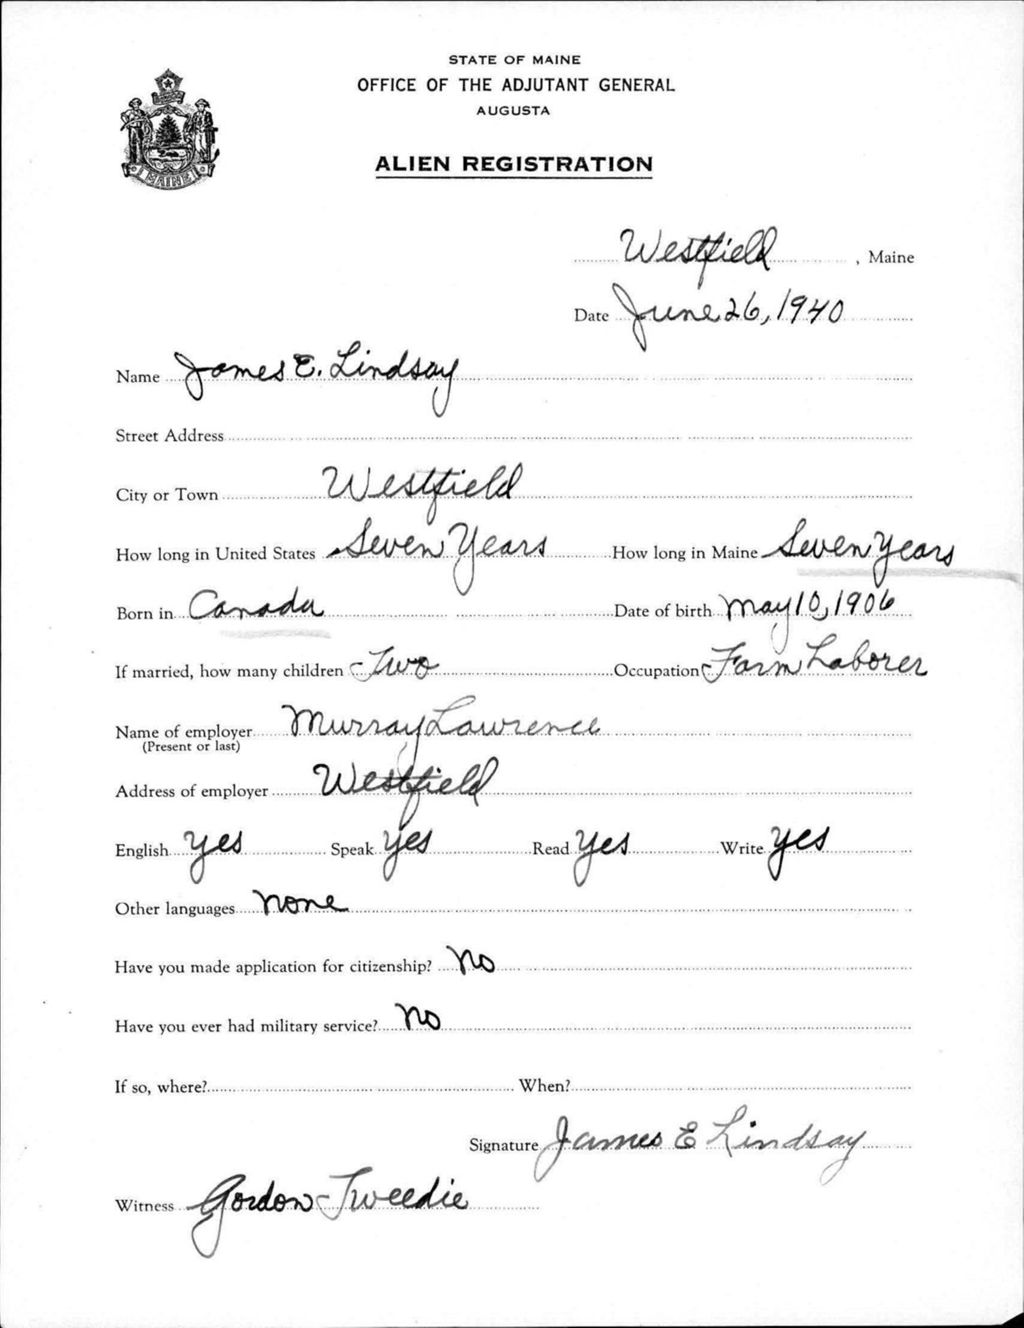 STATE OF MAINE
OFFICE OF THE ADJUTANT GENERAL
AUGUSTA
ALIEN REGISTRATION
MAINE
Westfield, Maine
Date June 26, 1940
Name James E. Lindsay
Street Address
City or Town Westfield
How long in United States Seven Years How long in Maine Seven Years
Born in Canada Date of birth May 10, 1906
If married, how many children Two Occupation Farm Laborer
Name of employer Murray Lawrence
(Present or last)
Address of employer Westfield
English yes Speak yes Read yes Write yes
Other languages none
Have you made application for citizenship? No
Have you ever had military service? No
If so, where? When?
Signature James E Lindsay
Witness Gordon Tweedie